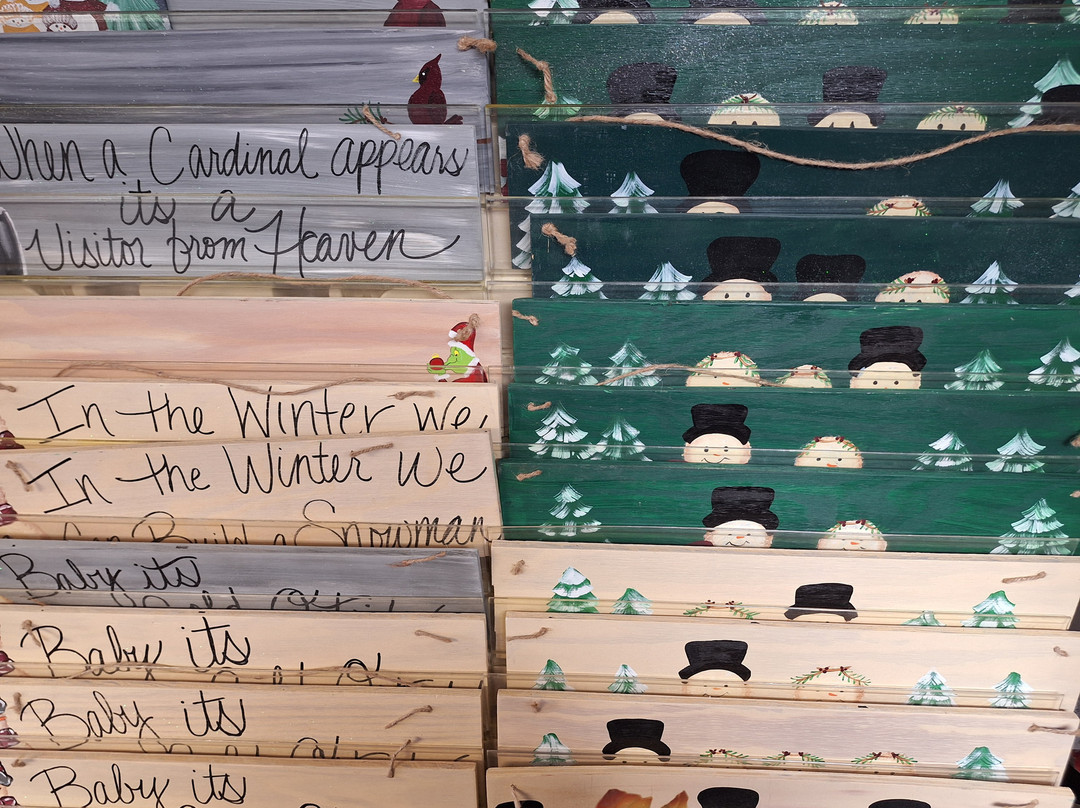 When a Cardinal appears
its a
Visitor from Heaven
In the Winter we
In the Winter we
Can Build a Snowman
Baby its
Baby its
Baby its
Baby its